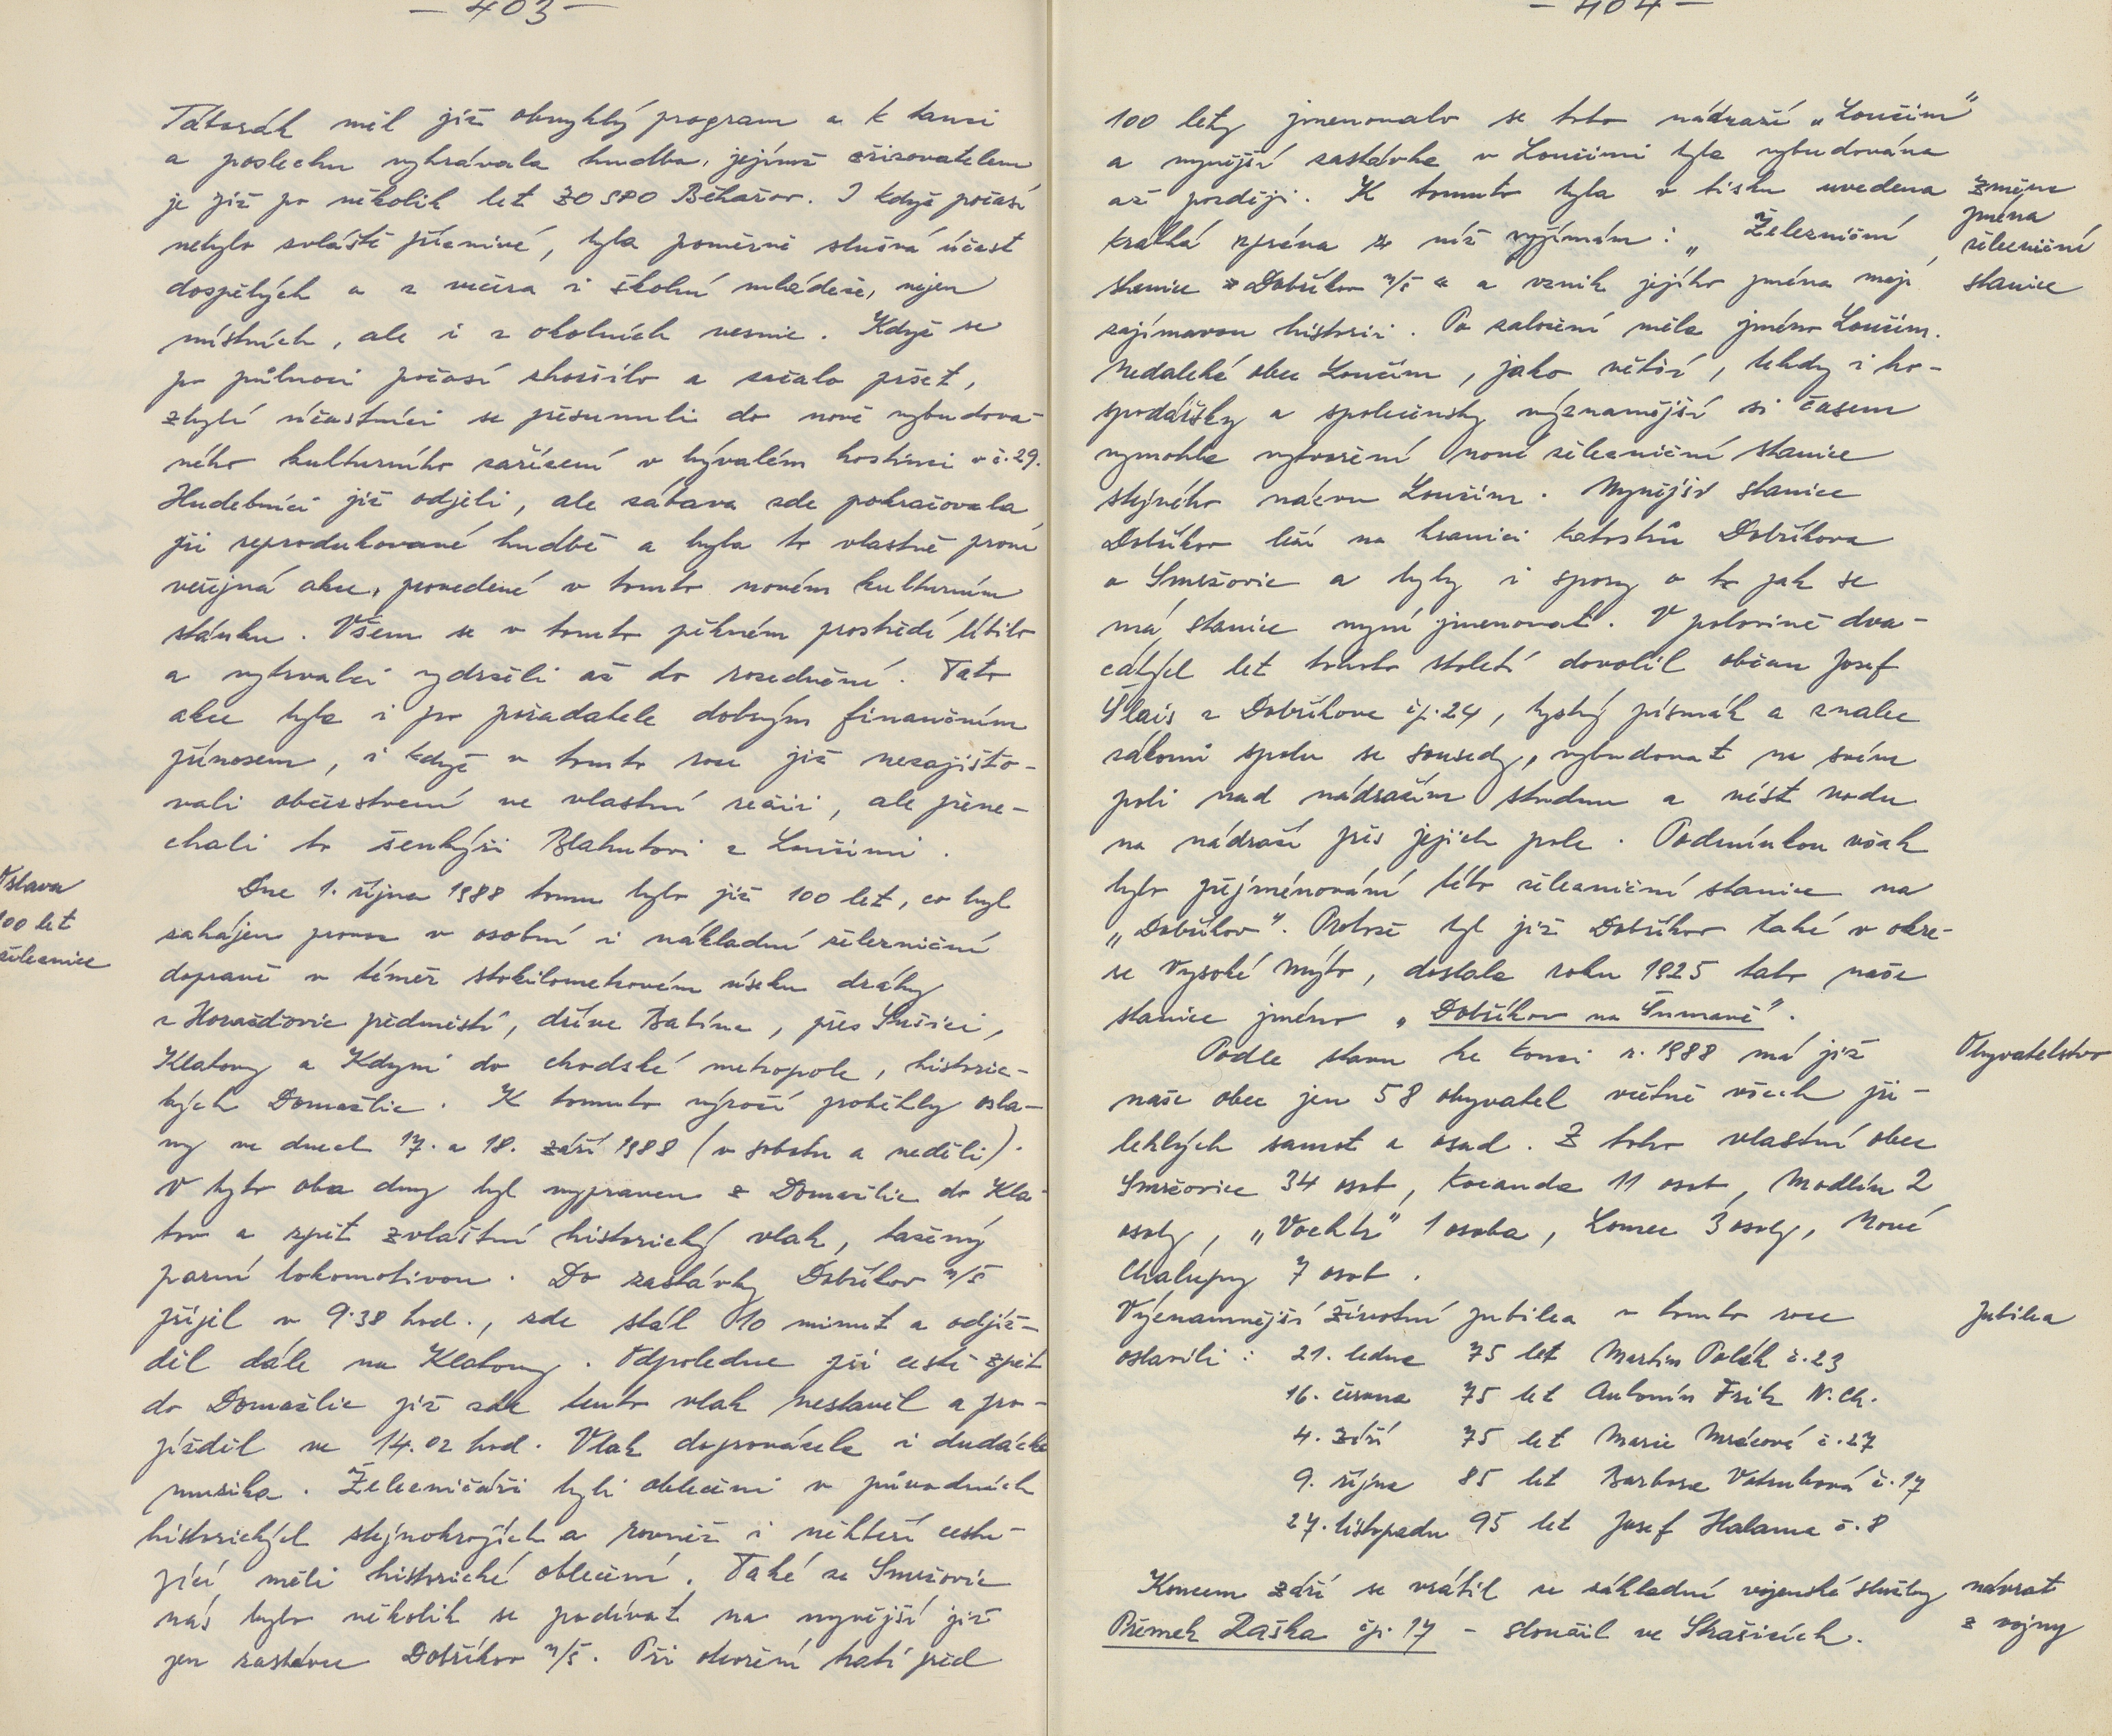 — 403 —
Táborák měl již obvyklý program a k tanci
a poslechu vyhrávala hudba, jejímž zřizovatelem
je již po několik let ZO SPO Běhařov. I když počasí
nebylo zvláště příznivé, byla poměrně slušná účast
dospělých a z večera i školní mládeže, nejen
místních, ale i z okolních vesnic. Když se
po půlnoci počasí zhoršilo a začalo pršet,
zbylí účastníci se přesunuli do nově vybudova-
ného kulturního zařízení v bývalém hostinci v č. 29.
Hudebníci již odjeli, ale zábava zde pokračovala
při reprodukované hudbě a byla to vlastně první
veřejná akce, provedené v tomto novém kulturním
stánku. Všem se v tomto pěkném prostředí líbilo
a vytrvalci vydrželi až do rozednění. Tato
akce byla i pro pořadatele dobrým finančním
přínosem, i když v tomto roce již nezajišťo-
vali občerstvení ve vlastní režii, ale přene-
chali to šenkýři Blahutovi z Loučimi.
Oslava
100 let
železnice
Dne 1. října 1988 tomu bylo již 100 let, co byl
zahájen provoz v osobní i nákladní železniční
dopravě v téměř stokilometrovém úseku dráhy
z Horažďovic předměstí, dříve Babína, přes Sušici,
Klatovy a Kdyni do chodské metropole, historic-
kých Domažlic. K tomuto výročí proběhly osla-
vy ve dnech 17. a 18. září 1988 (v sobotu a neděli).
V tyto oba dny byl vypraven z Domažlic do Kla-
tov a zpět zvláštní historický vlak, tažený
parní lokomotivou. Do zastávky Dobříkov n/š
přijel v 9.38 hod., zde stál 10 minut a odjíž-
děl dále na Klatovy. Odpoledne při cestě zpět
do Domažlic již zde tento vlak nestavěl a pro-
jížděl ve 14.02 hod. Vlak doprovázela i dudácká
muzika. Železničáři byli oblečeni v původních
historických stejnokrojích a rovněž i někteří cestu-
jící měli historické oblečení. Také ze Smržovic
nás bylo několik se podívat na nynější již
jen zastávce Dobříkov n/š. Při otevření trati před
— 404 —
100 lety jmenovalo se toto nádraží „Loučim“
a nynější zastávka v Loučimi byla vybudována
až později. K tomuto byla v tisku uvedena
krátká zpráva z níž vyjímám: „Železniční
stanice z Dobříkov n/š a a vznik jejího jména mají
zajímavou historii. Po založení měla jméno Loučim.
Změna
jména
železniční
stanice
Nedaleké obec Loučim, jako větší, tehdy i ho-
spodářsky a společensky významější si časem
vymohla vytvoření nové železniční stanice
stejného názvu Loučim. Nynější stanice
Dobříkov leží na hranici katastrů Dobříkova
a Smržovic a byly i spory o to jak se
má stanice nyní jmenovat. V polovině dva-
cátých let tohoto století dovolil občan Josef
Šlais z Dobříkova čp. 24, bystrý písmák a znalec
zákonů spolu se sousedy, vybudovat na svém
poli nad nádražím studnu a vést vodu
na nádraží přes jejich pole. Podmínkou však
bylo přejmenování této železniční stanice na
„Dobříkov“. Protože byl již Dobříkov také v okre-
se Vysoké Mýto, dostala roku 1925 tato naše
stanice jméno „Dobříkov na Šumavě“.
Obyvatelstvo
Podle stavu ke konci r. 1988 má již
naše obec jen 58 obyvatel včetně všech při-
lehlých samot a osad. Z toho vlastní obec
Smržovice 34 osob, Kocanda 11 osob, Modlín 2
osoby, „Vochtr“ 1 osoba, Lomec 3 osoby, Nové
Chalupy 7 osob.
Jubilea
Význammější životní jubilea v tomto roce
oslavili: 21. ledna 75 let Martin Polák č. 23
16. června 75 let Antonín Frik N. Ch.
4. září 75 let Marie Mrázová č. 27
9. října 85 let Barbora Votrubová č. 17
27. listopadu 95 let Josef Halama č. 8
Koncem září se vrátil ze základní vojenské služby
Přemek Raška čp. 17 - sloužil ve Strašicích.
návrat
z vojny